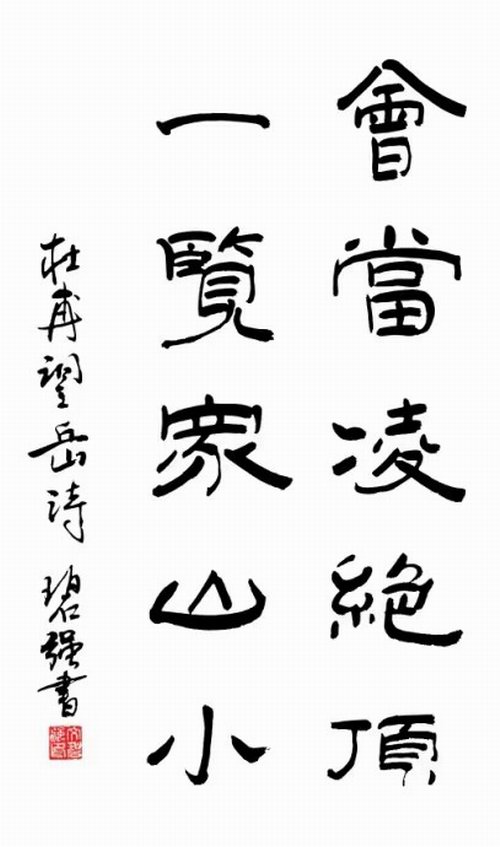 會當凌絕頂
一覽衆山小
杜甫望岳詩 碧強書